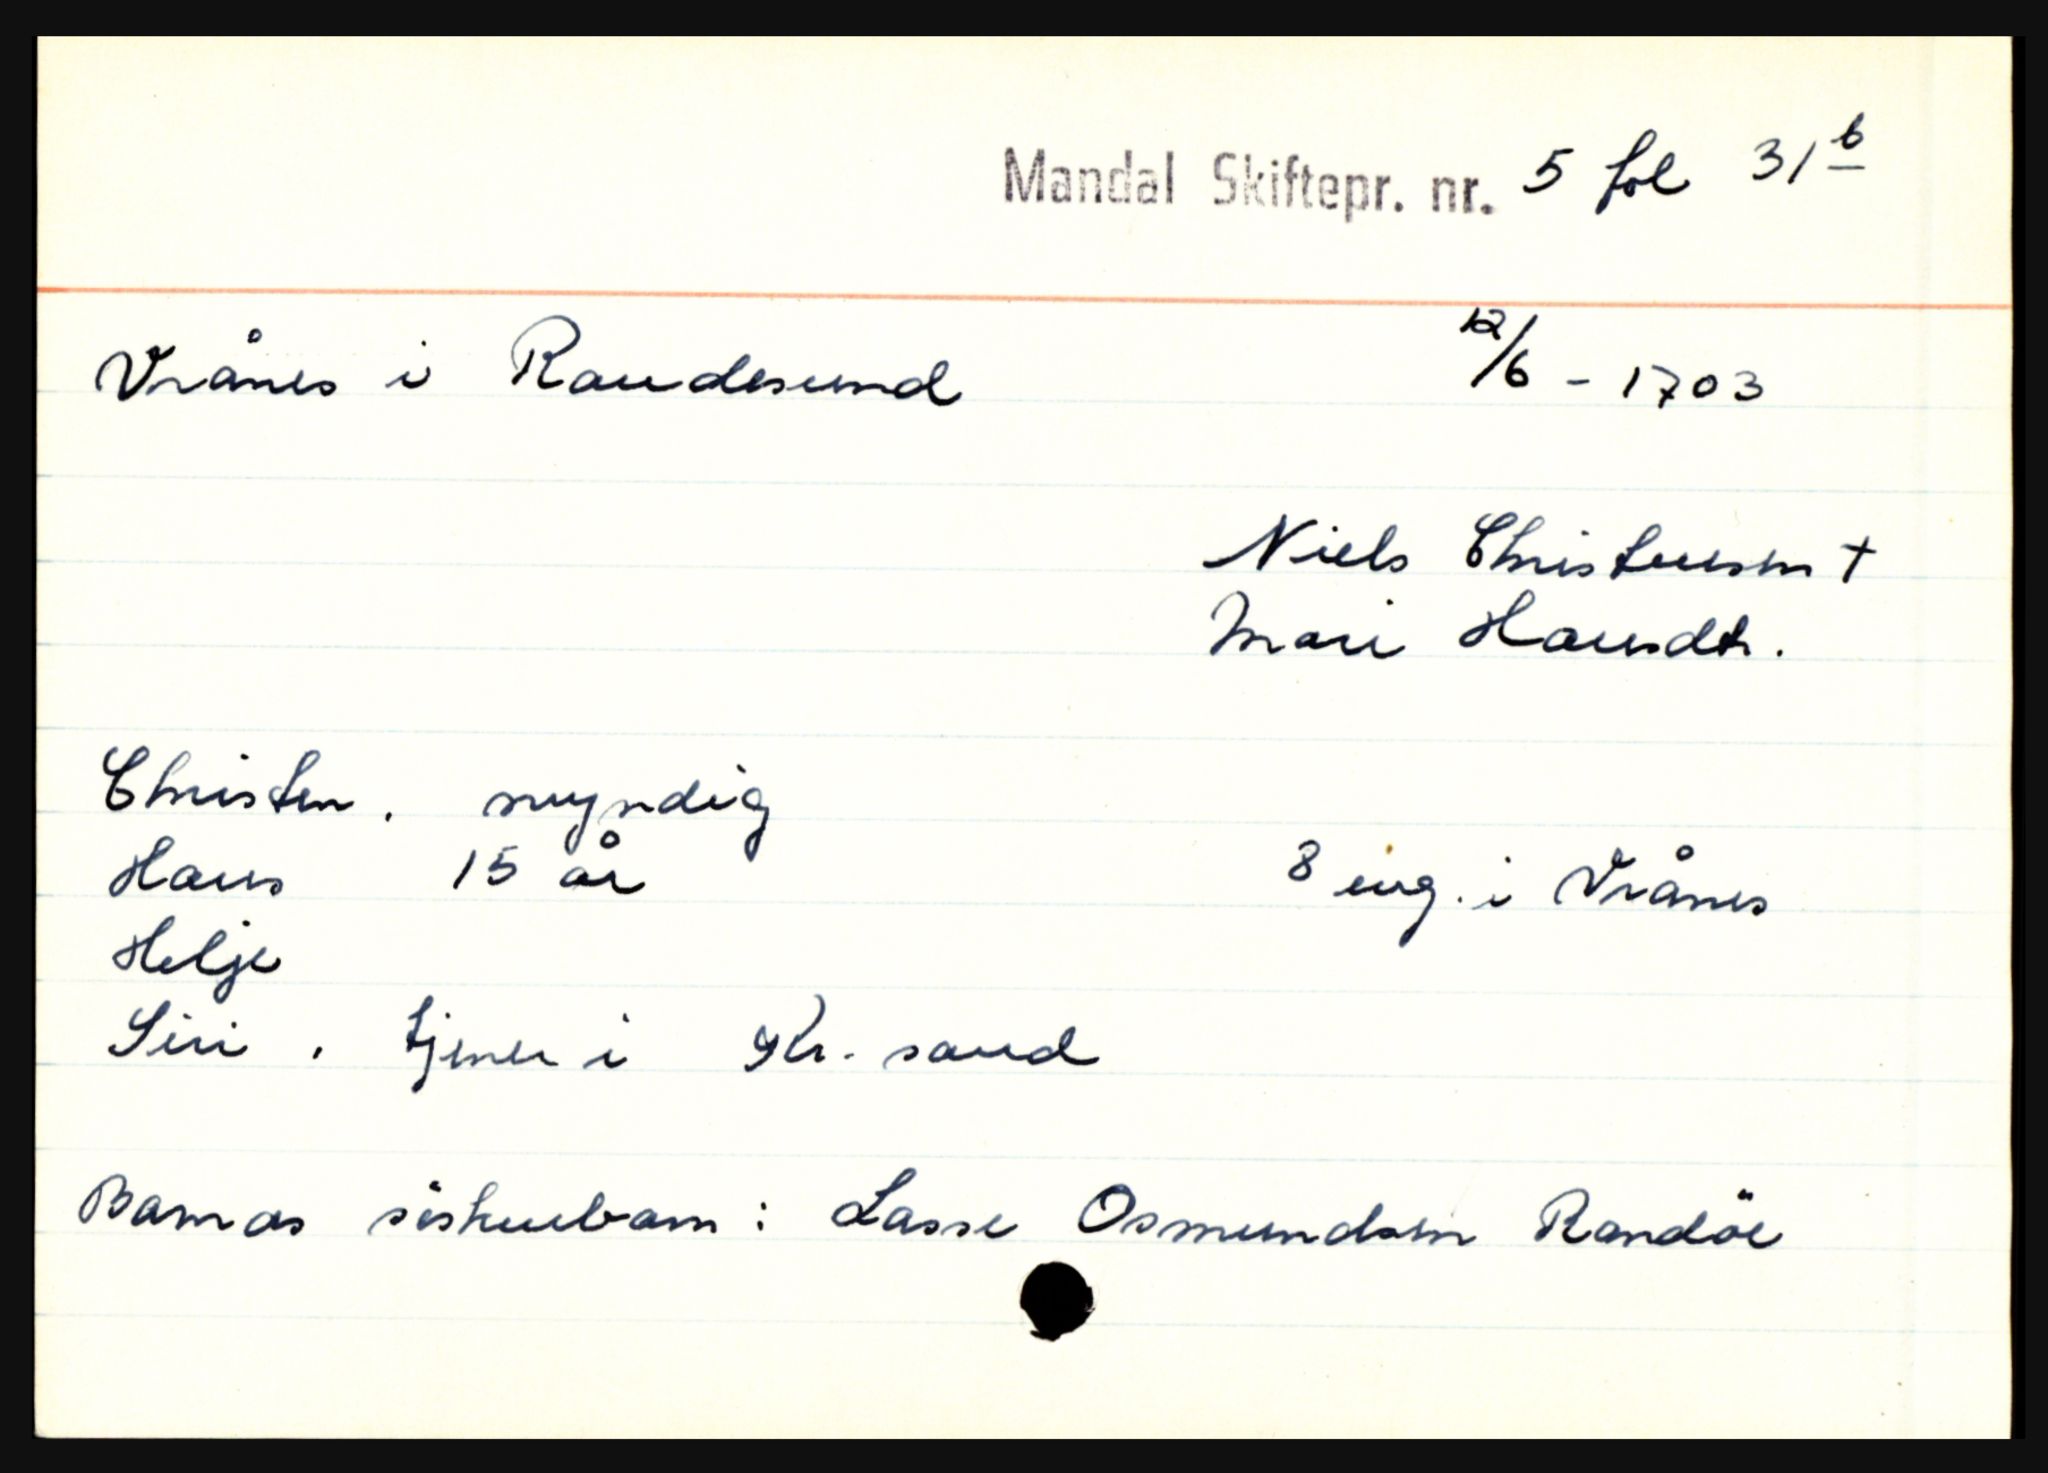 Mandal Skiftepr. nr. 5 fol 31 b
Vrånes i Randesund 12/6 - 1703
Niels Christensen †
Mari Hansdtr.
Christen, myndig
Hans 15 år 8 eng. i Vrånes
Helje
Siri, tjener i Kr. sand
Barnas söskenbarn: Lasse Osmundsen Randöe